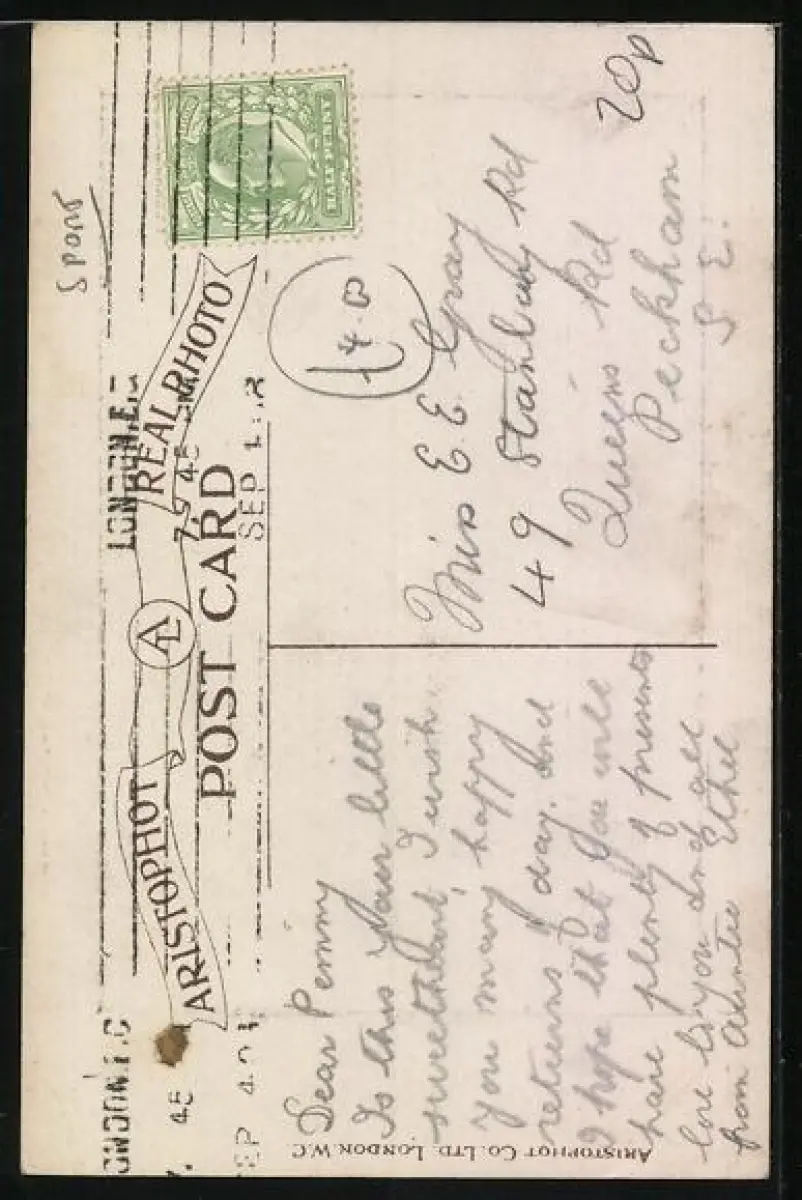 ARISTOPHOT AL REAL PHOTO
POST CARD
LONDON. E.
7.45
SEP 4
HALF PENNY
SPORT
20p
Dear Penny
Is this your little
sweetheart, I wish
you many happy
returns of day. And
I hope that you will
have plenty of presents
love to you and all
from Auntie Ethel
Miss E. E. Gray
49 Stanbury Rd
Queens Rd
Peckham
S. E.
ARISTOPHOT CO. LTD. LONDON. W.C.